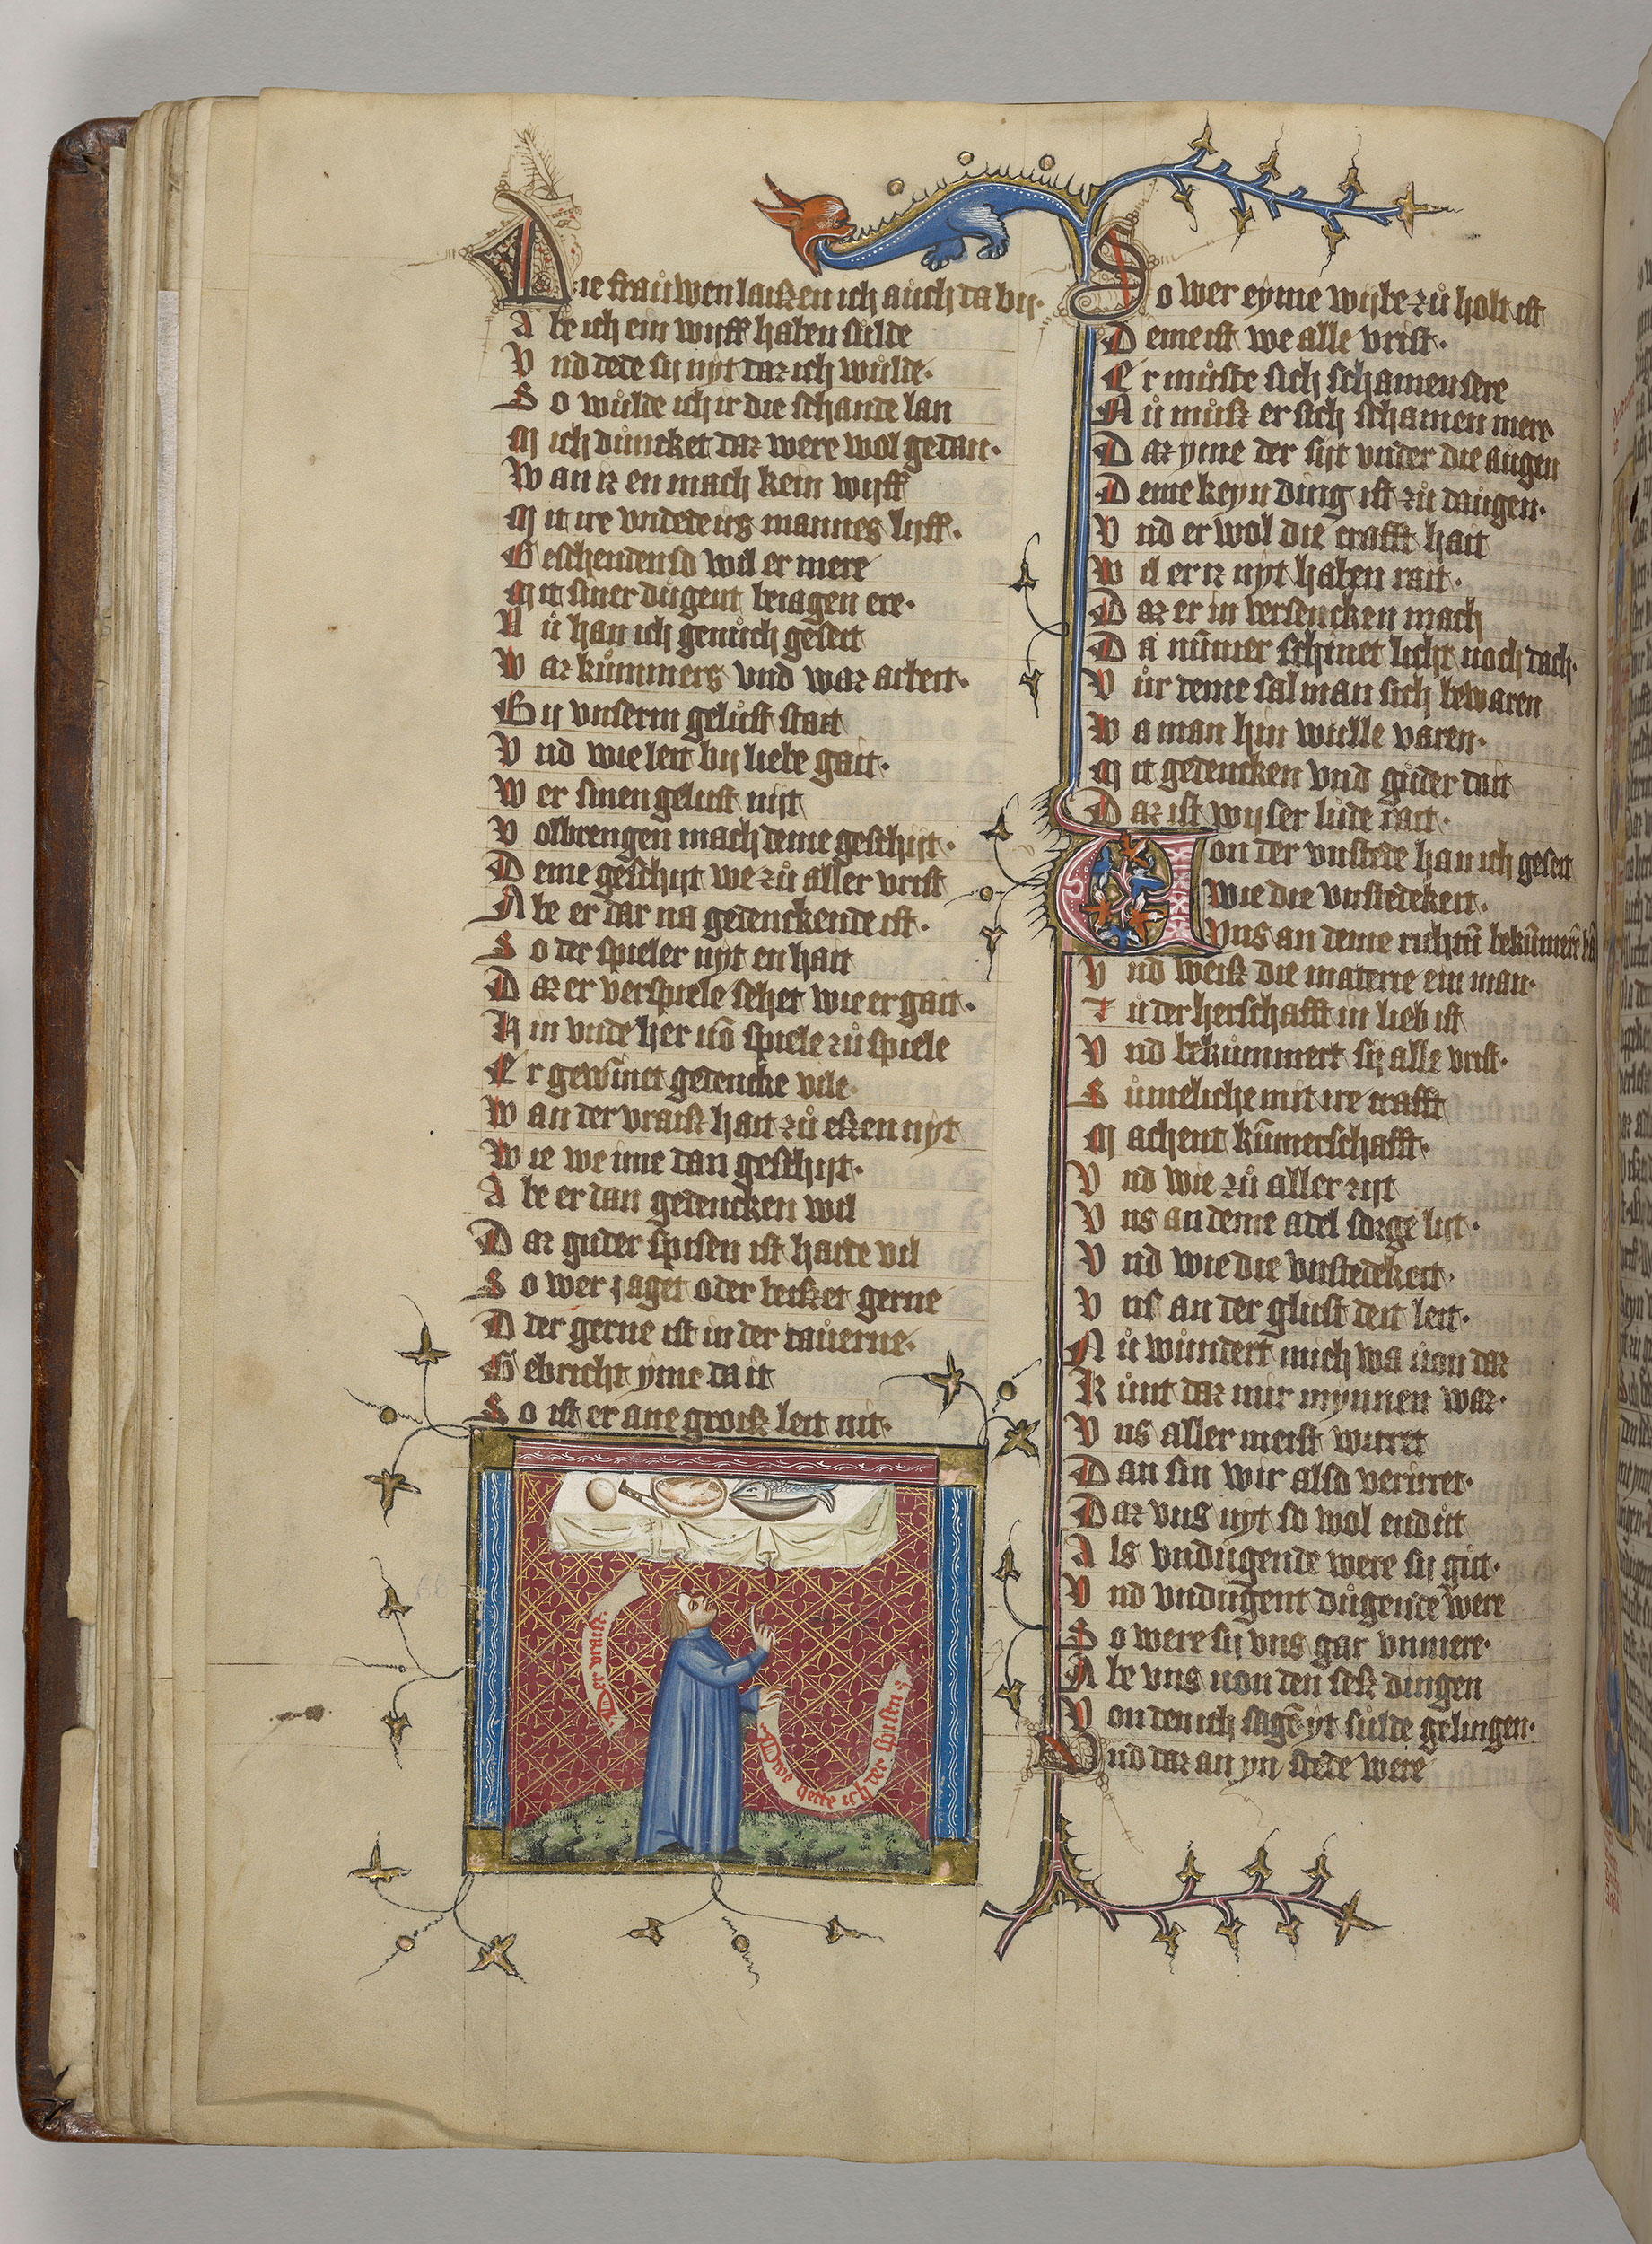 Die frauwen laißen ich auch da bij·
Abe ich ein wijff haben sulde
Vnd dede sij nÿt daz ich wůlde·
So wůlde ich ir die schande lan
Mich důncket daz were wol gedan·
Wan iz en mach kein wijff
Mit ire vndedens mannes lijff·
Geschenden so wil er mere
Mit siner důgent beiagen ere·
Nů han ich genůch geseit
Waz kůmmers vnd waz arbeit·
Bij vnserm gelůst stait
Vnd wie leit bij liebe gait·
Wer sinen gelust nijt
Volbrengen mach deme geschijt·
Deme geschijt we zů aller vrist
Abe er dar na gedenckende ist·
So der spieler nyt en hait
Daz er verspiele sehet wie er gait·
Hin vnde her uō spiele zů spiele
Er gewinnet gedencke vile·
Wan der vraiß hait zů eßen nyt
Wie we ime dan geschijt·
Abe er dan gedencken wil
Daz guder spisen ist harte vil
So wer jaget oder beißet gerne
Oder gerne ist in der tauerne·
Gebricht ÿme da it
So ist er ane groiß leit nit·
Der vraiß·
Owie gerte ich der spisen
So wer eyme wijbe zů holt ist
Deme ist we alle vrist·
Er můste sich schamen sere
Nů můß er sich schamen mere·
Daz yme der sijt vnder die augen
Deme keyn ding ist zů daugen·
Vnd er wol die crafft hait
Wil er iz nÿt haben rait·
Daz er in versencken mach
Da nūmer schinet licht noch dach·
Vůr deme sal man sich bewaren
Wa man hin wulle varen·
Mit gedencken vnd gůder dait
Daz ist wijser lude rait·
Von der vnstede han ich geseit
Wie die vnstedekeit·
Vns an deme richtū bekūmerē kā
Vnd weiß die materie ein man·
Zů der herschafft in lieb ist
Vnd bekůmmert sij alle vrist·
Sůmeliche mit ire crafft
Machent kūmerschafft·
Vnd wie zů aller zijt
Vns an deme adel sorge lijt·
Vnd wie die vnstedekeit·
Vns an der glust deit leit·
Nů wůndert mich wa uon daz
Kůnt daz mir mynnen waz·
Vns aller meist wirret
Dan sin wir also verirret·
Daz vns nyt so wol endůt
Als vndůgende were sij gůt·
Vnd vndůgent důgende were
So were sij vns gar vnmere·
Abe vns uon den seß dingen
Von den ich sagē yt sulde gelingen·
Vnd daz an yn stede were